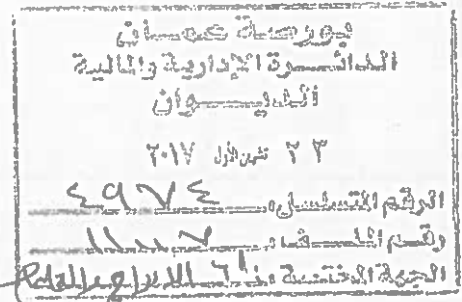 بورصة عمان
الدائرة الإدارية والمالية
الديوان
٢٣ تشرين الأول ٢٠١٧
الرقم المتسلسل ٤٩٧٤
رقم الملف
الجهة المختصة الإدراج